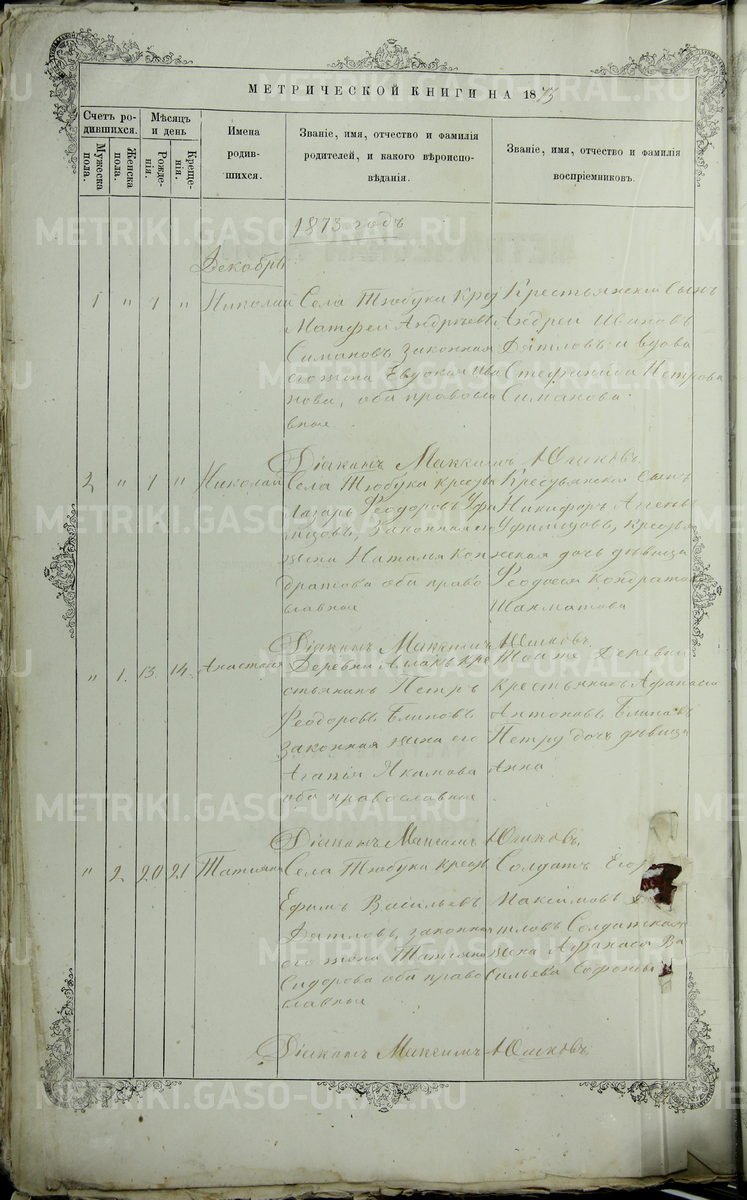 МЕТРИЧЕСКОЙ КНИГИ НА 1873
Счетъ ро-
дившихся.
Мужеска
пола.
Женска
пола.
Мѣсяцъ
и день
Рожде-
нія.
Креще-
нія.
Имена
родив-
шихся.
Званіе, имя, отчество и фамилія
родителей, и какого вѣроиспо-
вѣданія.
Званіе, имя, отчество и фамилія
воспріемниковъ.
1873 годъ
Декабрь
1 " 1 " Николай
Села Тюбука
Матфей Андреевъ
Симановъ законная
его жена Евдокия Ива
нова, оба правосла
вные
Крестьянский Сынъ
Андрей Ивановъ
Дятловъ и вдова
Стефанида Петрова
Симанова
Діаконъ Максимъ Юшковъ
2 " 1 " Николай
Села Тюбука
Лазарь Феодоровъ Уфи
мцовъ, законная его
жена Наталья Кон
дратова оба право
славные
Крестьянский сынъ
Никифоръ
Уфимцовъ, Крестья
нская дочь дѣвица
Феодосья Кондратова
Шахматова
Діаконъ Максимъ Юшковъ
" 1. 13. 14. Анастасия
Деревни Аллакъ кре
стьянинъ Петръ
Феодоровъ Блиновъ
законная жена его
Агапія Якимова
оба православные
Тойже Деревни
крестьянинъ Афанасій
Антоновъ Блиновъ
Петру дочь дѣвица
Анна
Діаконъ Максимъ Юшковъ,
" 2. 20 21 Татияна
Села Тюбука
Ефимъ Васильевъ
Дятловъ, законная
его жена Татияна
Сидорова оба право
славные
Солдатъ Егоръ
Максимовъ
тловъ Солдатская
жена Афанасия Ва
сильева
Діаконъ Максимъ Юшковъ
METRIKI.GASO-URAL.RU